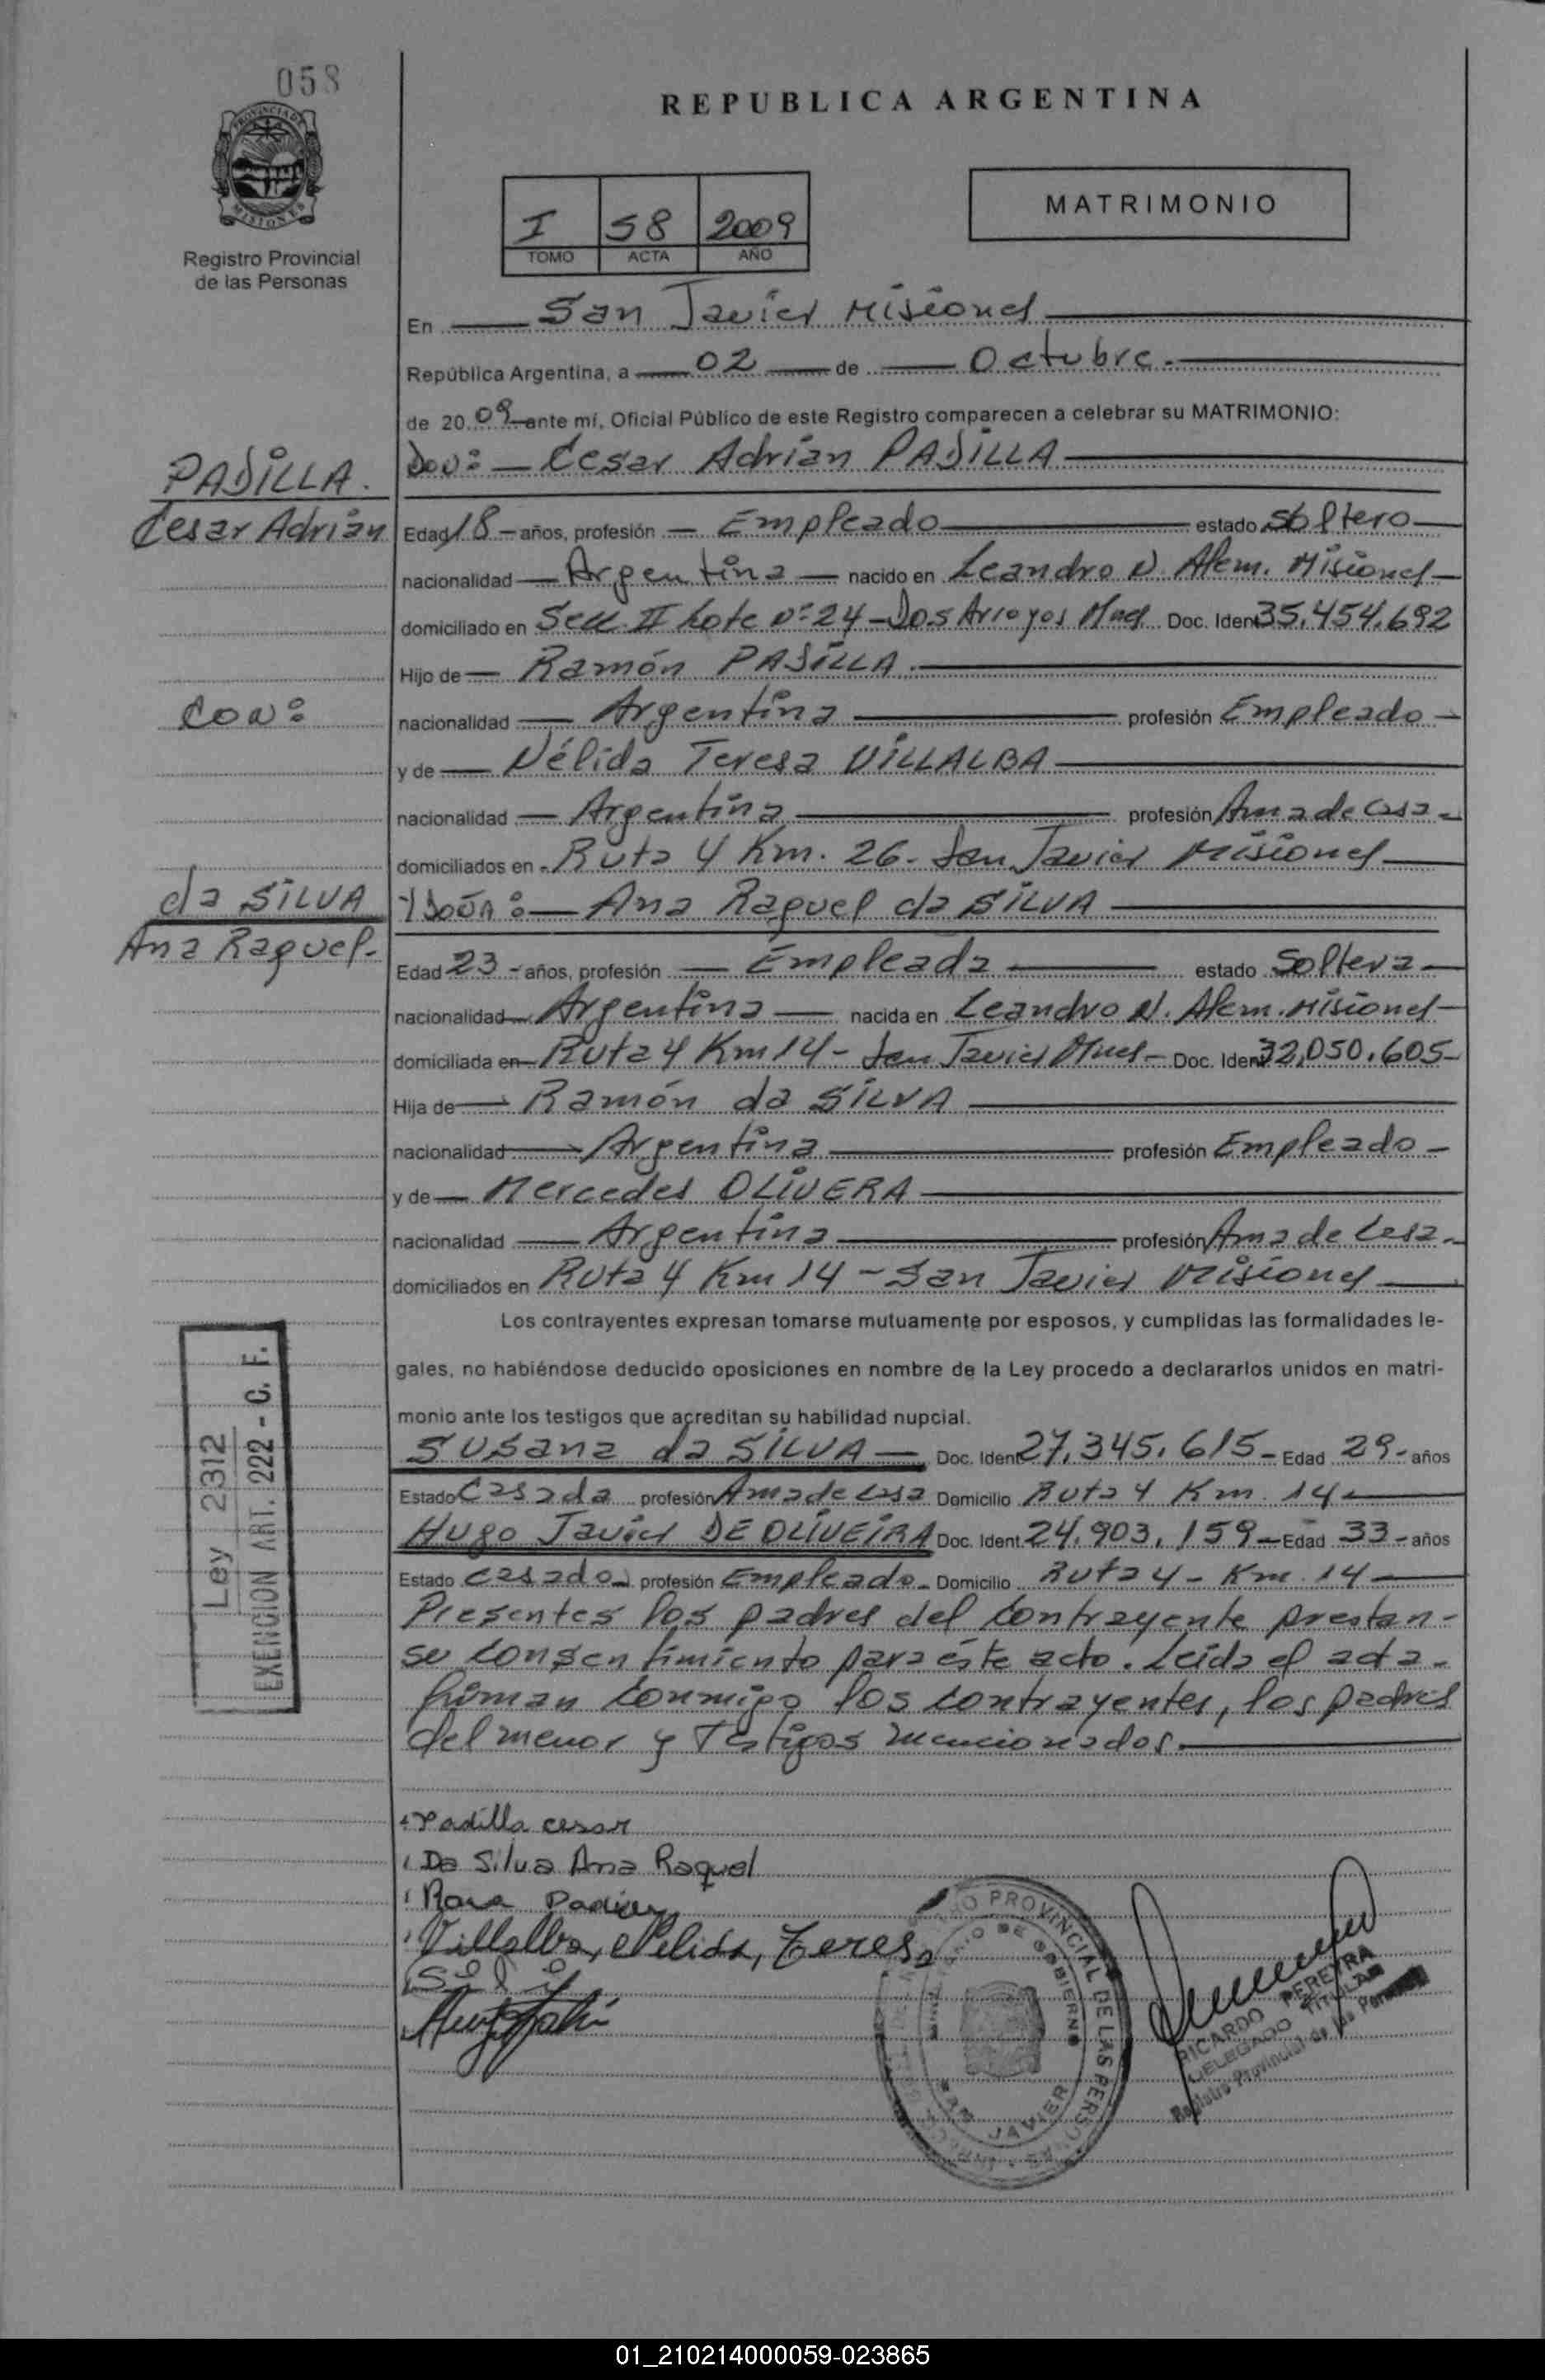 058
REPUBLICA ARGENTINA
PROVINCIA DE MISIONES
Registro Provincial
de las Personas
I 58 2009
TOMO ACTA AÑO
MATRIMONIO
En San Javier Misiones
República Argentina, a 02 de Octubre.
de 20 09 ante mí, Oficial Público de este Registro comparecen a celebrar su MATRIMONIO:
PADILLA.
Cesar Adrián
Don: Cesar Adrián PADILLA
Edad 18 años, profesión Empleado estado Soltero
nacionalidad Argentina nacido en Leandro N. Alem. Misiones
domiciliado en Secc. II Lote Nº 24 - Dos Arroyos Mnes Doc. Ident 35.454.692
Hijo de Ramón PADILLA.
Con:
nacionalidad Argentina profesión Empleado
y de Nélida Teresa VILLALBA
nacionalidad Argentina profesión Ama de Casa
domiciliados en Ruta 4 Km. 26. San Javier Misiones
da SILVA
Ana Raquel.
Y DOÑA: Ana Raquel da SILVA
Edad 23 años, profesión Empleada estado Soltera
nacionalidad Argentina nacida en Leandro N. Alem. Misiones
domiciliada en Ruta 4 Km 14 - San Javier Mnes Doc. Ident 32,050.605
Hija de Ramón da SILVA
nacionalidad Argentina profesión Empleado
y de Mercedes OLIVERA
nacionalidad Argentina profesión Ama de Casa.
domiciliados en Ruta 4 Km 14 - San Javier Misiones
Los contrayentes expresan tomarse mutuamente por esposos, y cumplidas las formalidades le-
gales, no habiéndose deducido oposiciones en nombre de la Ley procedo a declararlos unidos en matri-
monio ante los testigos que acreditan su habilidad nupcial.
Susana da SILVA Doc. Ident 27.345.615 Edad 29 años
Estado Casada profesión Ama de casa Domicilio Ruta 4 Km. 14
Hugo Javier DE OLIVEIRA Doc. Ident. 24.903.159 Edad 33 años
Estado Casado profesión Empleado Domicilio Ruta 4 - Km. 14
Presentes los padres del contrayente prestan
su consentimiento para éste acto. Leída el acta
firman conmigo los contrayentes, los padres
del menor y Testigos mencionados.
Ley 2312
EXENCION ART. 222 - C. F.
Padilla cesar
Da Silva Ana Raquel
Villalba, Nelida, Teresa
PROVINCIAL DE LAS PERSONAS
DE GOBIERNO
SAN JAVIER
RICARDO PEREYRA
DELEGADO TITULAR
Registro Provincial de las Personas
01_210214000059-023865